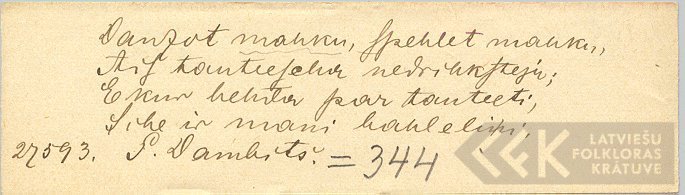 Danzot mahku, spehlet mahku,
Aif tauteescha nedrihksteju;
Ekur behda par tauteeti,
Schee ir mani bahleliņi,
27593. P. Dambits. = 344
LATVIEŠU
FOLKLORAS
KRĀTUVE